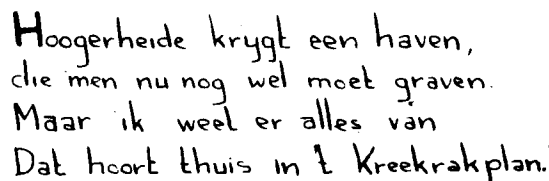 Hoogerheide krygt een haven,
die men nu nog wel moet graven.
Maar ik weet er alles van
Dat hoort thuis in 't Kreekrakplan.